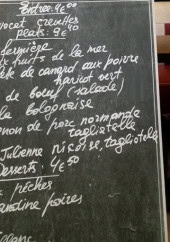 Entrée: 4€00
vocat crevettes
plats: 9€40
fermière
x fruits de la mer
de canard aux poivre
haricot vert
de boeuf (salade)
la bolognaise
non de porc normande
tagliatelle
Julienne niçoise, tagliatelle
Desserts: 4€50
pêches
poires